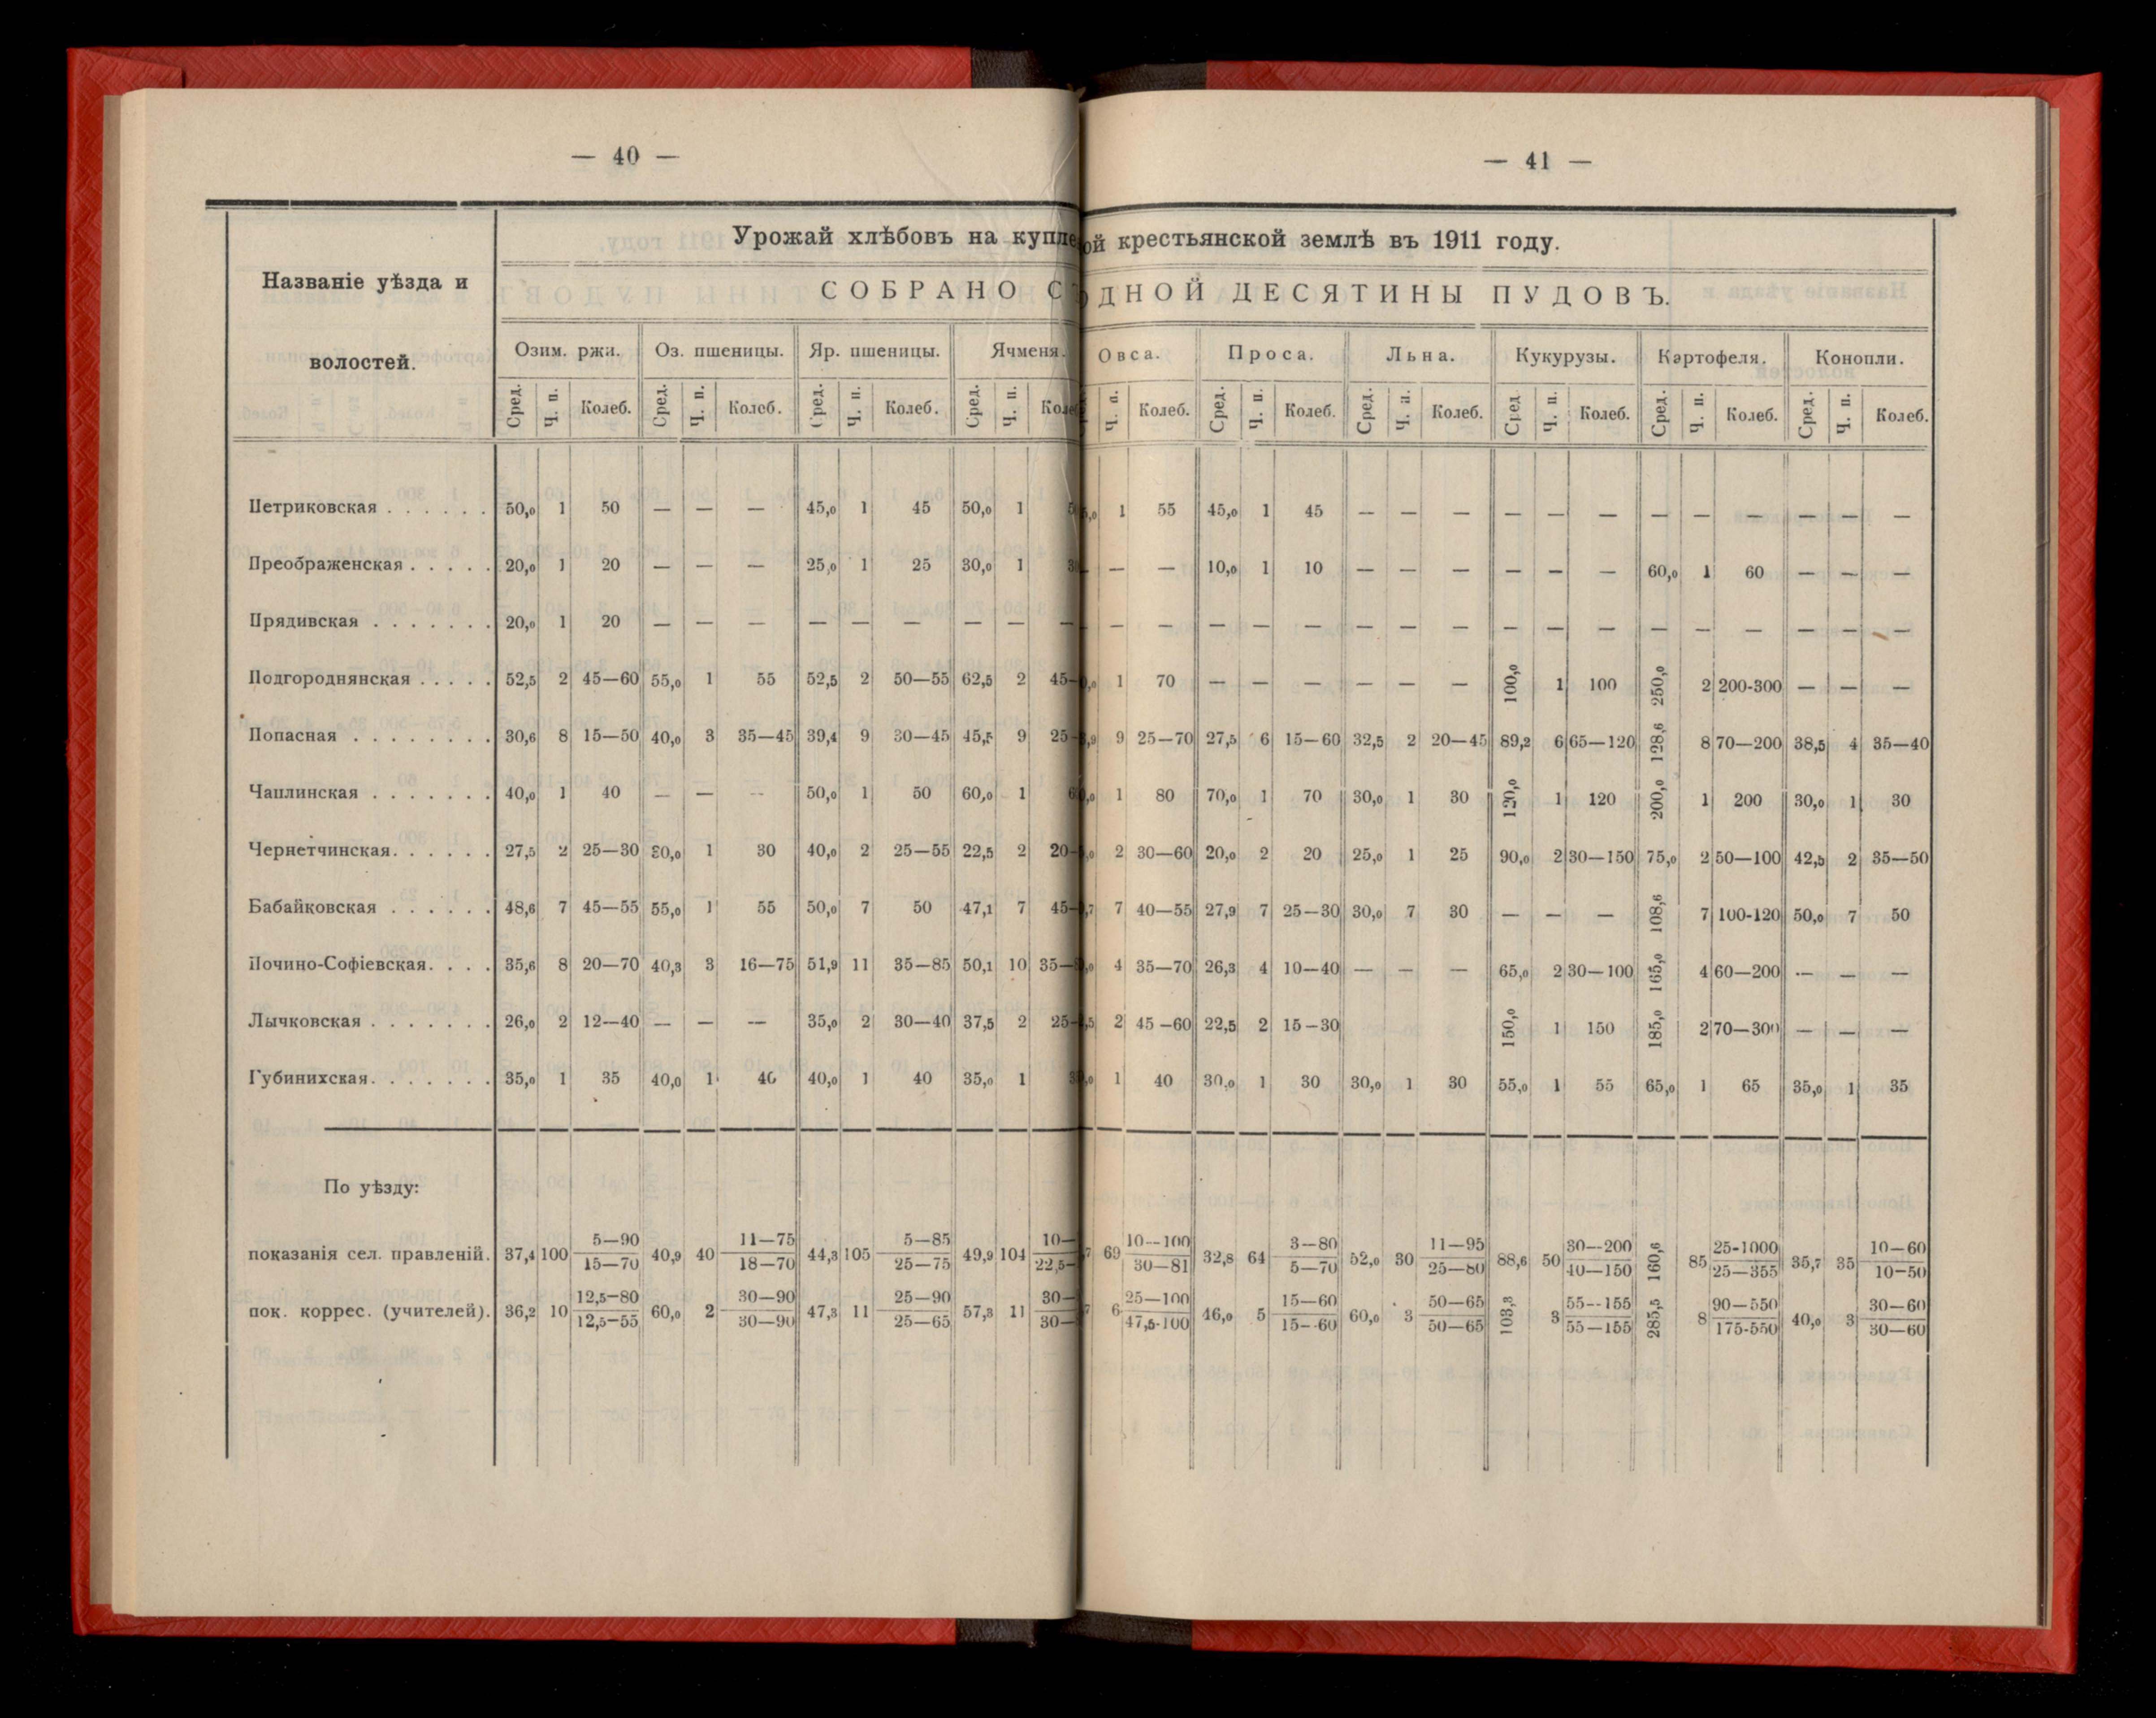 — 40 —
Урожай хлѣбовъ на купле
Названіе уѣзда и
волостей.
СОБРАНО С
Озим. ржи. Оз. пшеницы. Яр. пшеницы. Ячменя.
Сред. Ч. п. Колеб. Сред. Ч. п. Колеб. Сред. Ч. п. Колеб. Сред. Ч. п. Коле
Петриковская . . . . . . 50,0 1 50 — — — 45,0 1 45 50,0 1
Преображенская . . . . . 20,0 1 20 — — — 25,0 1 25 30,0 1
Прядивская . . . . . . . 20,0 1 20 — — — — — — — — —
Подгороднянская . . . . . 52,5 2 45—60 55,0 1 55 52,5 2 50—55 62,5 2 45—
Попасная . . . . . . . . 30,6 8 15—50 40,0 3 35—45 39,4 9 30—45 45,5 9 25—
Чаплинская . . . . . . . 40,0 1 40 — — — 50,0 1 50 60,0 1
Чернетчинская . . . . . . 27,5 2 25—30 30,0 1 30 40,0 2 25—55 22,5 2 20—
Бабайковская . . . . . . 48,6 7 45—55 55,0 1 55 50,0 7 50 47,1 7 45—
Почино-Софіевская . . . . 35,6 8 20—70 40,3 3 16—75 51,9 11 35—85 50,1 10 35—
Лычковская . . . . . . . 26,0 2 12—40 — — — 35,0 2 30—40 37,5 2 25—
Губинихская . . . . . . . 35,0 1 35 40,0 1 40 40,0 1 40 35,0 1
По уѣзду:
показанія сел. правленій. 37,4 100 5—90 15—70 40,9 40 11—75 18—70 44,3 105 5—85 25—75 49,9 104 10— 22,5—
пок. коррес. (учителей). 36,2 10 12,5—80 12,5—55 60,0 2 30—90 30—90 47,3 11 25—90 25—65 57,3 11 30— 30—
— 41 —
ой крестьянской землѣ въ 1911 году.
ДНОЙ ДЕСЯТИНЫ ПУДОВЪ.
Овса. Проса. Льна. Кукурузы. Картофеля. Конопли.
Ч. п. Колеб. Сред. Ч. п. Колеб. Сред. Ч. п. Колеб. Сред Ч. п. Колеб. Сред. Ч. п. Колеб. Сред. Ч. п. Колеб.
1 55 45,0 1 45 — — — — — — — — — — — —
— — 10,0 1 10 — — — — — — 60,0 1 60 — — —
— — — — — — — — — — — — — — — — —
1 70 — — — — — — 100,0 1 100 250,0 2 200-300 — — —
9 25—70 27,5 6 15—60 32,5 2 20—45 89,2 6 65—120 128,6 8 70—200 38,5 4 35—40
1 80 70,0 1 70 30,0 1 30 120,0 1 120 200,0 1 200 30,0 1 30
2 30—60 20,0 2 20 25,0 1 25 90,0 2 30—150 75,0 2 50—100 42,5 2 35—50
7 40—55 27,9 7 25—30 30,0 7 30 — — — 108,6 7 100-120 50,0 7 50
4 35—70 26,3 4 10—40 — — — 65,0 2 30—100 165,0 4 60—200 — — —
2 45—60 22,5 2 15—30 150,0 1 150 185,0 2 70—300 — — —
1 40 30,0 1 30 30,0 1 30 55,0 1 55 65,0 1 65 35,0 1 35
69 10—100 30—81 32,8 64 3—80 5—70 52,0 30 11—95 25—80 88,6 50 30—200 40—150 160,6 85 25-1000 25—355 35,7 35 10—60 10—50
6 25—100 47,5-100 46,0 5 15—60 15—60 60,0 3 50—65 50—65 103,3 3 55—155 55—155 285,5 8 90—550 175-550 40,0 3 30—60 30—60